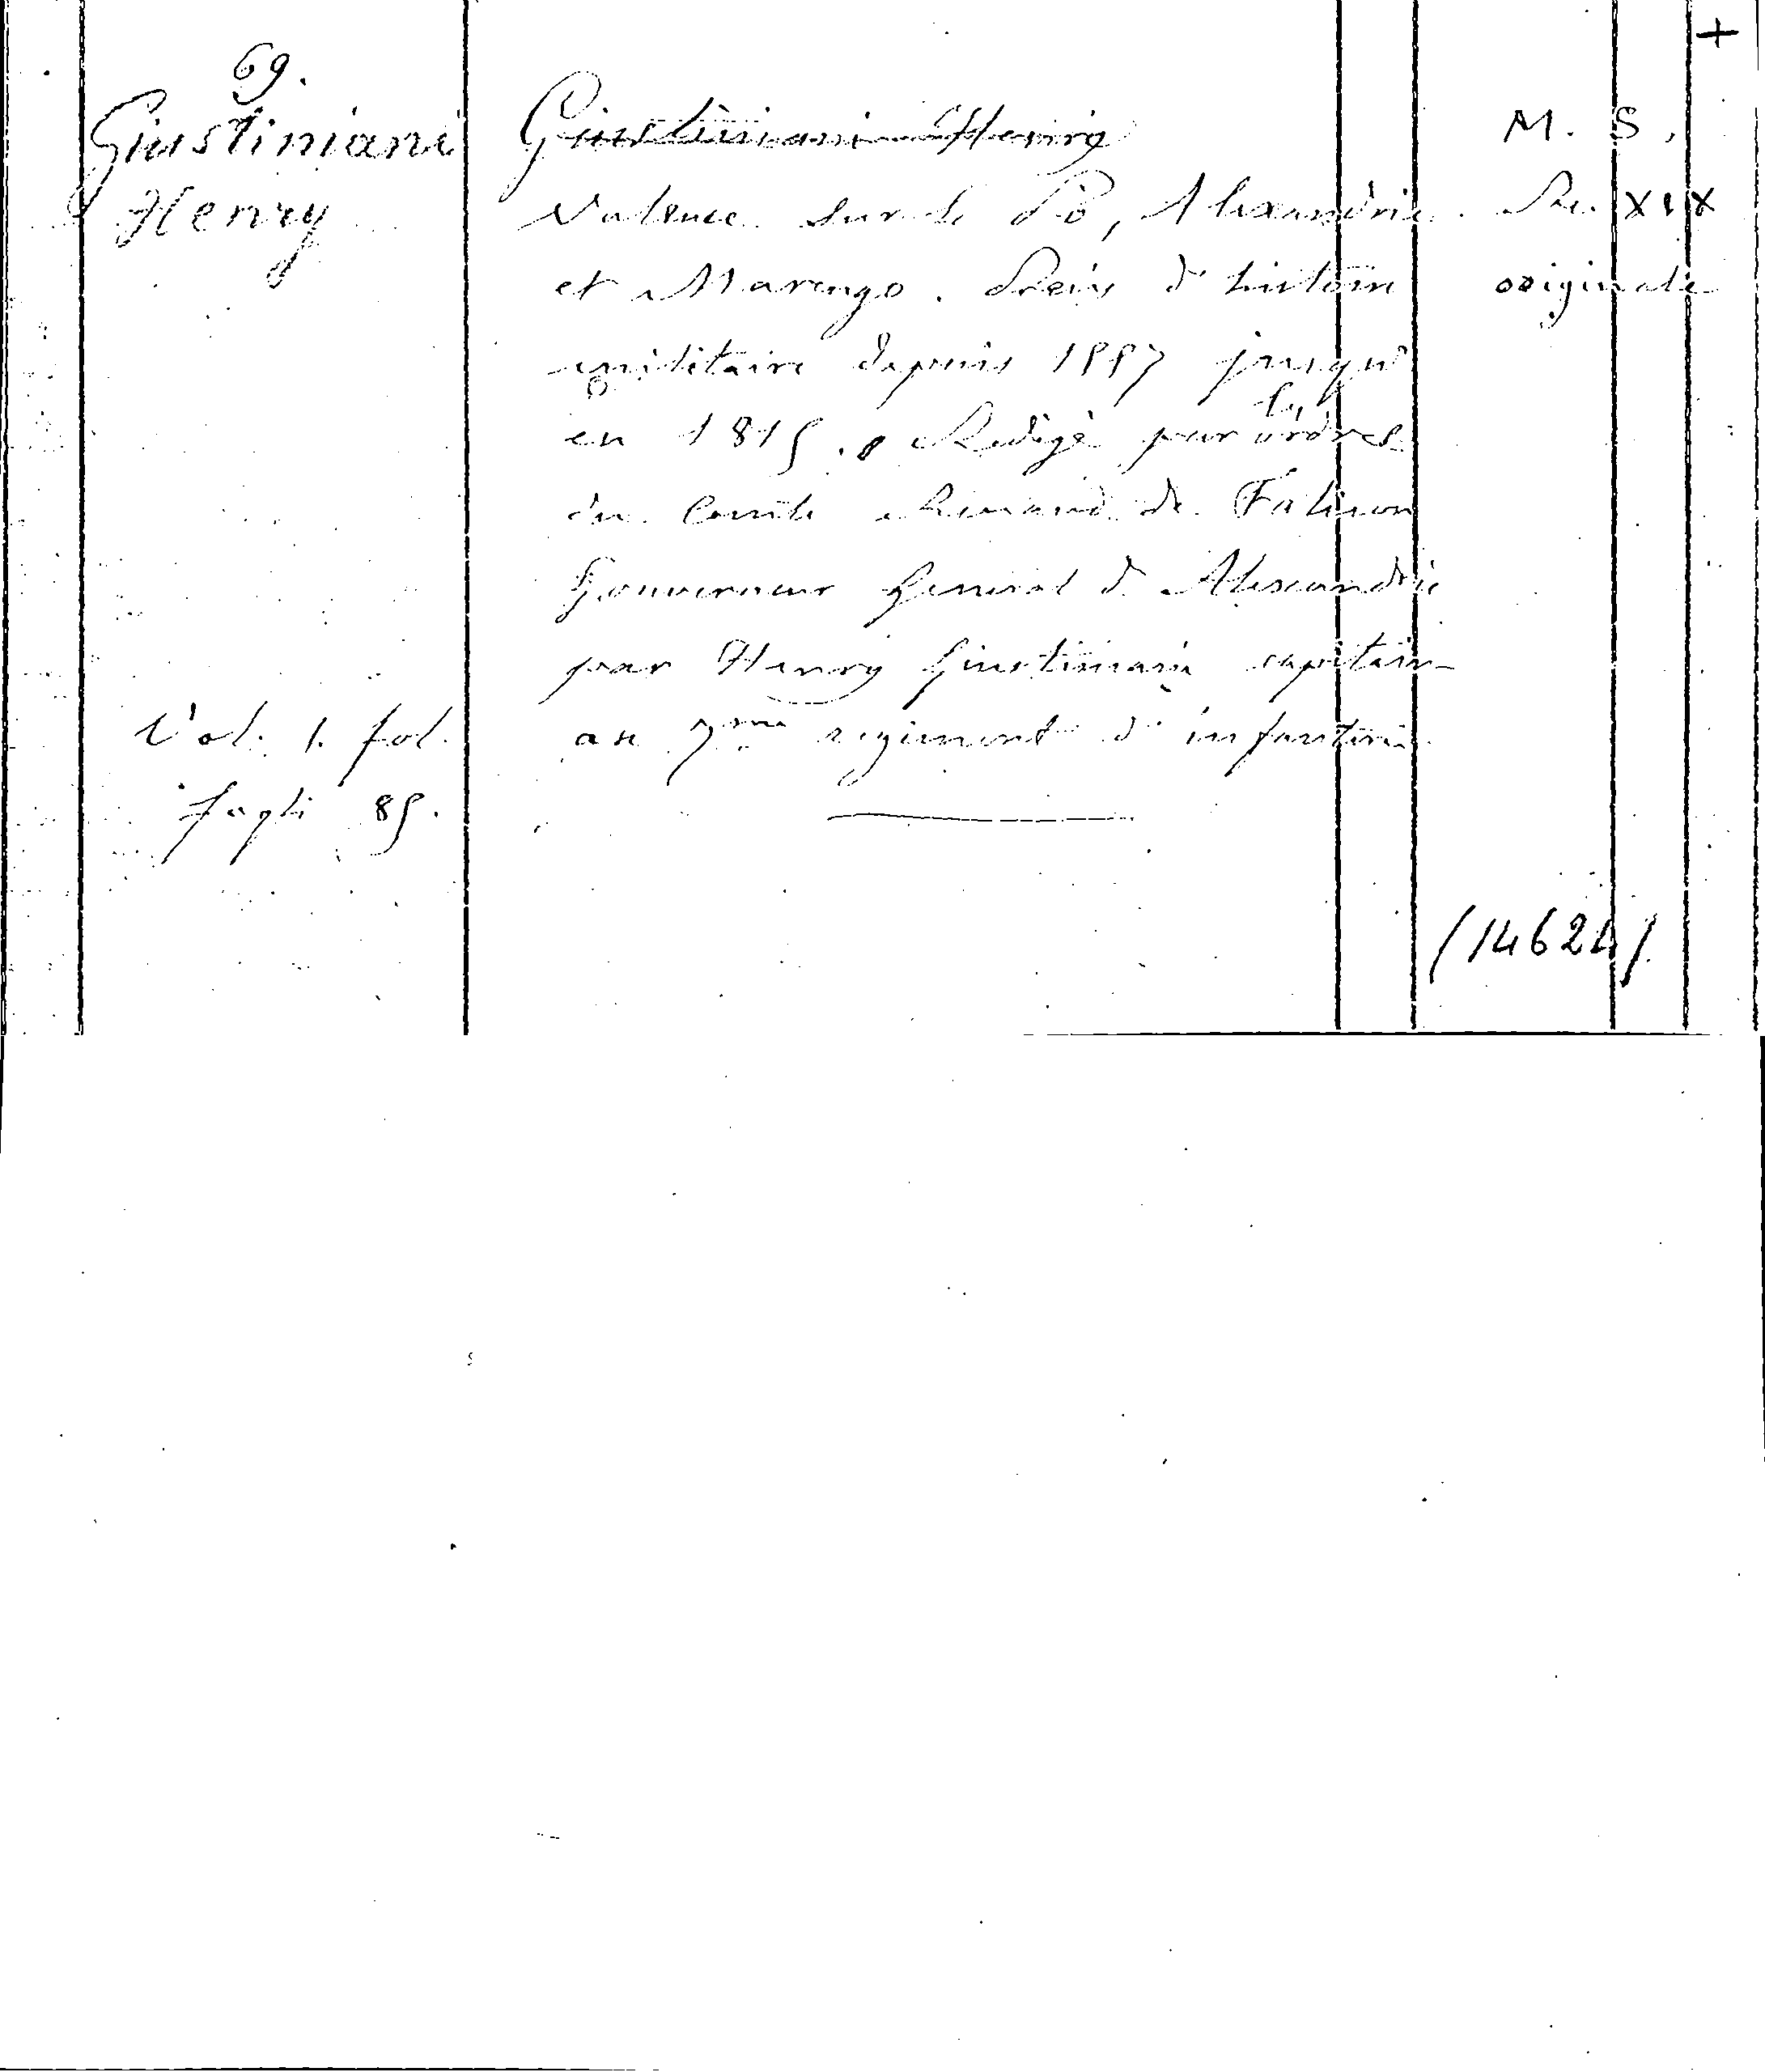 +
69.
Giustiniani
Henry
Vol. 1. fol.
fogli 85.
Giustiniani Henry
Valence sur le Pô, Alexandrie
et Marengo. Précis d'histoire
militaire depuis 1557 jusqu'
en 1815. Redigé par les ordres
du Comte de
Gouverneur General d'Alexandrie
par Henry Giustiniani capitaine
au 7me regiment d'infanterie
M. S.
Sec. XIX
originale
(14624)